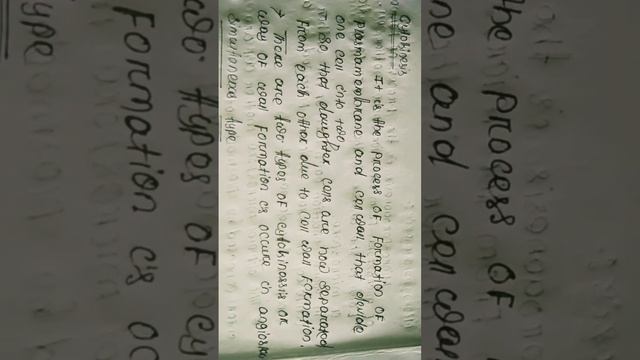 Cytokinesis
It is the process of formation of
plasmamembrane and cell wall, that divide
one cell into two
so that daughter cells are now separated
from each other due to cell wall formation.
→ There are two types of cytokinassis or
way of wall formation is occure in angios
Simultaneous type